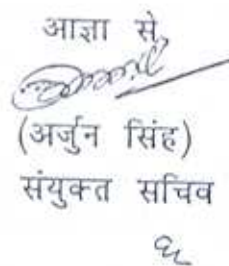 आज्ञा से,
(अर्जुन सिंह)
संयुक्त सचिव